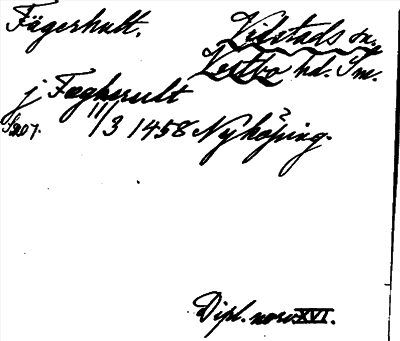 Fägerhult. Vilstads sn.
Vestbo hd. Sm.
j Fægherult
S. 207. 11/3 1458 Nyköping.
Dipl. norv. XVI.